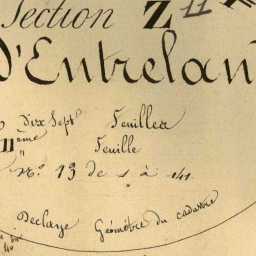 Section Z 11
D'Entrelan
Dix Sept Feuilles
11ème Feuille
Nos 13 de 1 à 141
Declaye Géomètre du cadastre